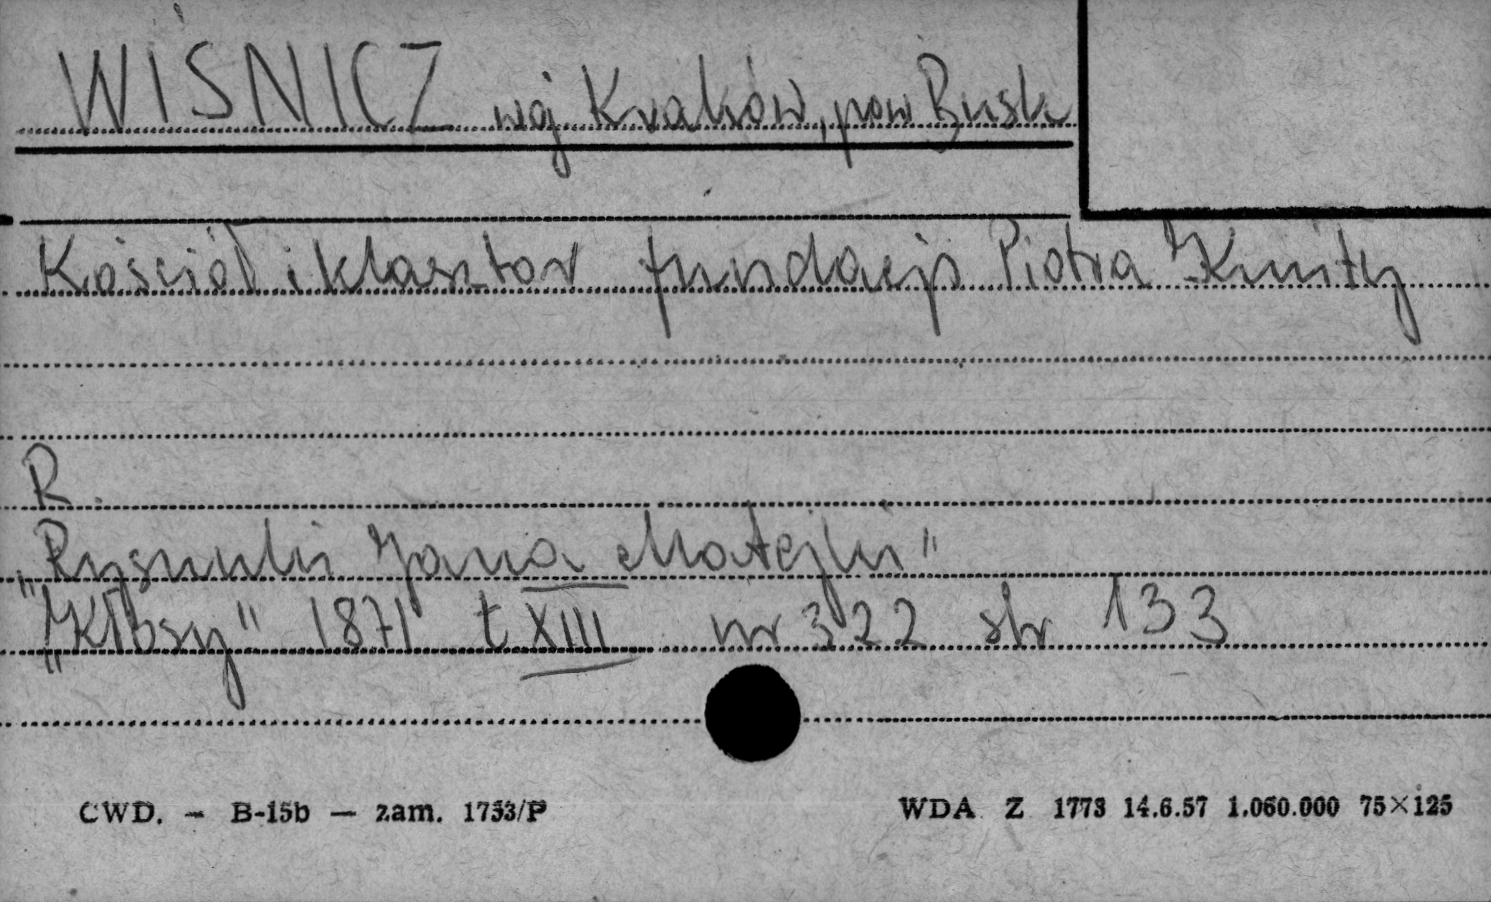 WIŚNICZ woj Kraków, pow Busk
Kościół i klasztor fundacji Piotra Kmity
R.
„Rysunki Jana Matejki"
„Kłosy" 1871 t XIII nr 322 str 133
CWD. — B-15b — zam. 1753/P WDA Z 1773 14.6.57 1.060.000 75×125